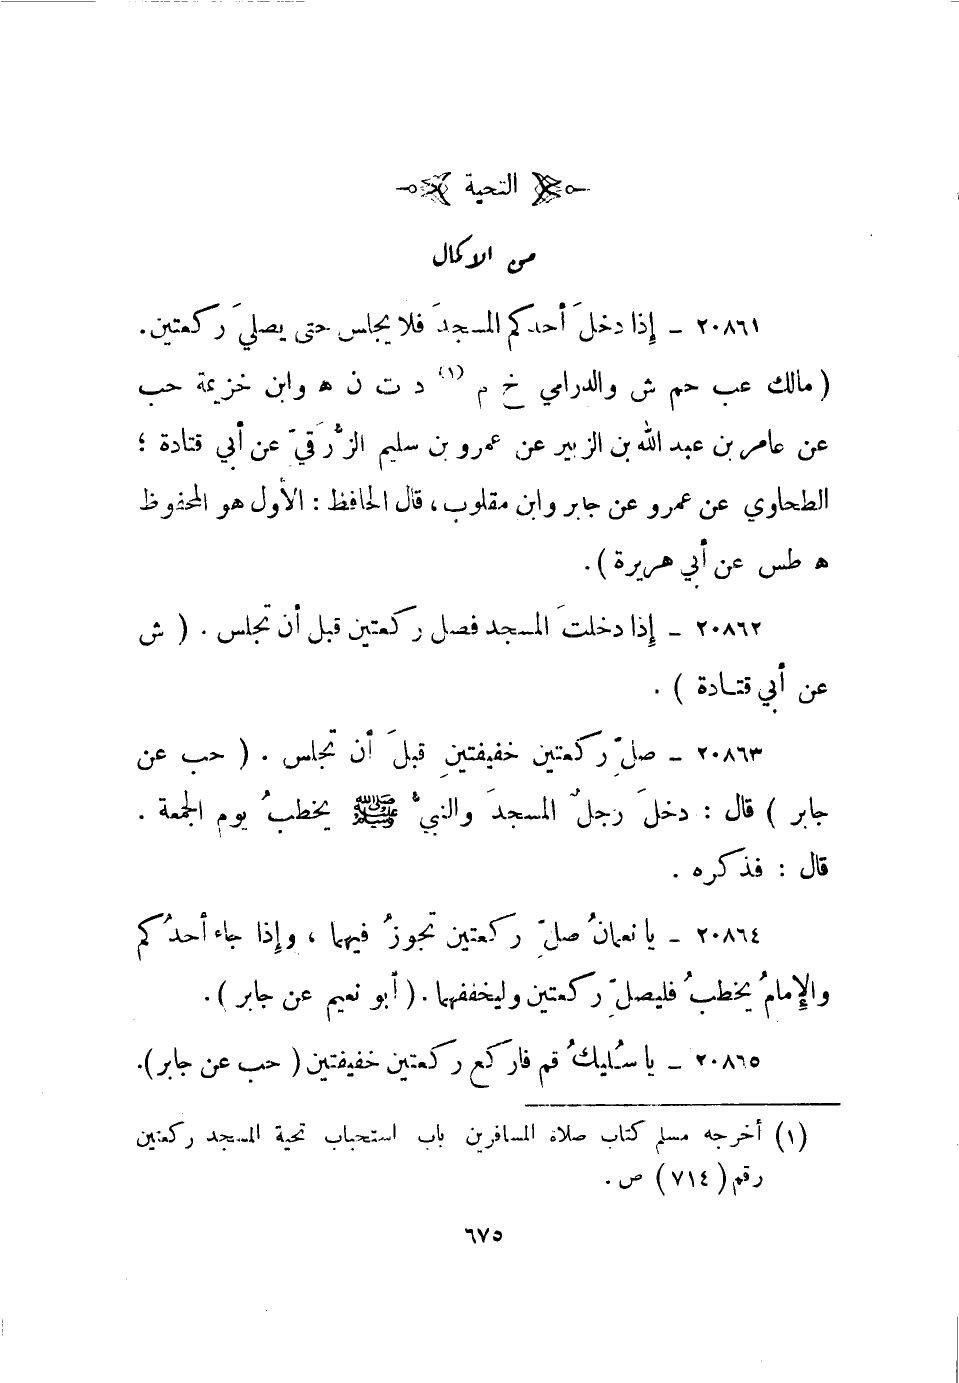 التحية
من الاكمال
٢٠٨٦١ - إذا دخلَ أحدكم المسجدَ فلا يجلس حتى يصليَ ركعتين.
( مالك عب حم ش والدرامي خ م (١) د ت ن ه وابن خزيمة حب
عن عامر بن عبد الله بن الزبير عن عمرو بن سليم الزُّرَقيّ عن أبي قتادة ؛
الطحاوي عن عمرو عن جابر وابن مقلوب، قال الحافظ : الأول هو المحفوظ
ه طس عن أبي هريرة ).
٢٠٨٦٢ - إذا دخلتَ المسجد فصل ركعتين قبل أن تجلس . ( ش
عن أبي قتـادة ) .
٢٠٨٦٣ - صلِّ ركعتين خفيفتينِ قبلَ أن تجلس . ( حب عن
جابر ) قال : دخلَ رجلٌ المسجدَ والنبيُّ ﷺ يخطبُ يوم الجمعة .
قال : فذكره .
٢٠٨٦٤ - يا نعمانُ صلِّ ركعتين تجوزُ فيهما ، وإذا جاء أحدُكم
والإمامُ يخطبُ فليصلِّ ركعتين وليخففهما . ( أبو نعيم عن جابر ).
٢٠٨٦٥ - يا سُليكُ قم فاركع ركعتين خفيفتين ( حب عن جابر ).
(١) أخرجه مسلم كتاب صلاة المسافرين باب استحباب تحية المسجد ركعتين
رقم ( ٧١٤ ) ص .
٦٧٥